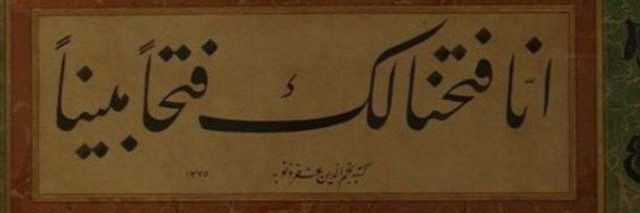 انّا فتحنا لك فتحاً مبيناً
كتبه نجم الدين غفر ذنوبه ١٣٧٥